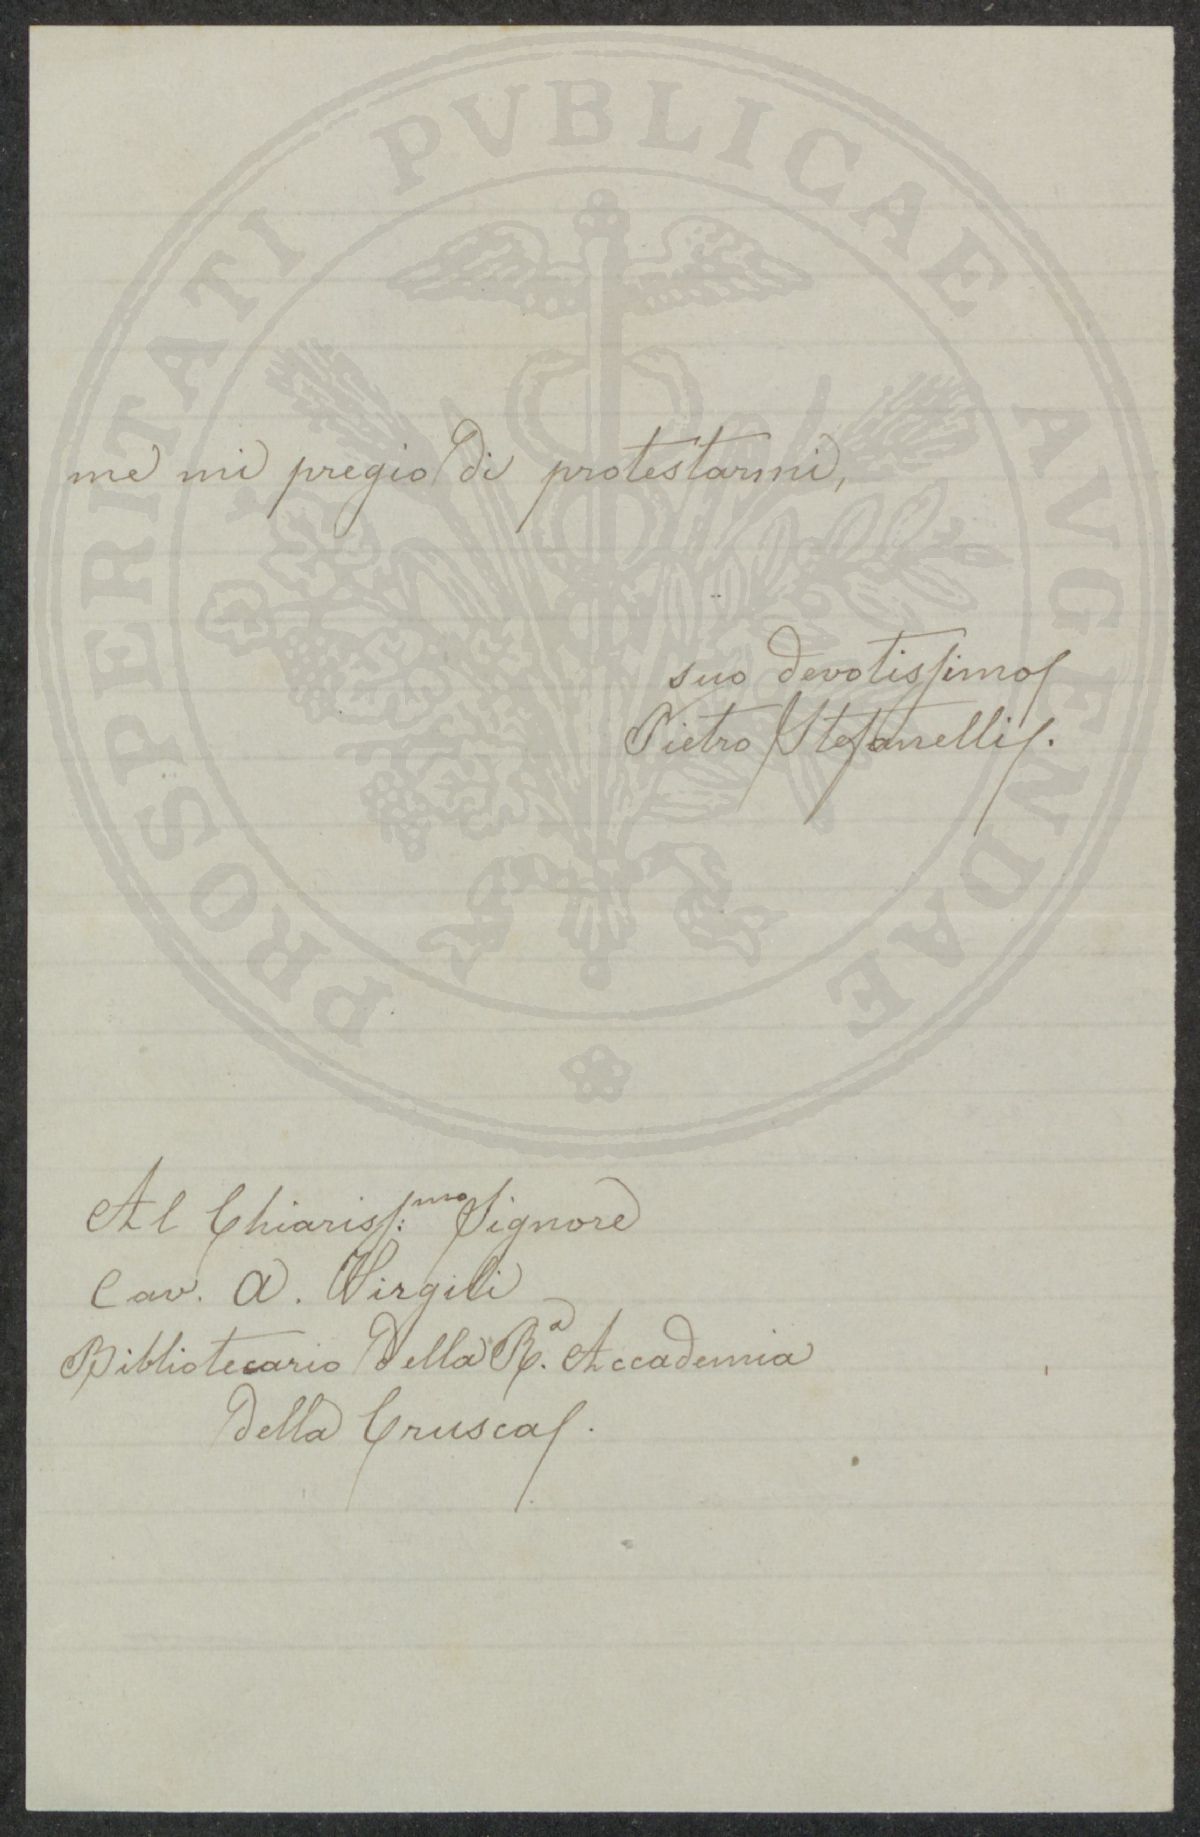 PROSPERITATI PVBLICAE AVGENDAE
me mi pregio di protestarmi,
suo devotissimo
Pietro Stefanelli.
Al Chiariss:mo Signore
Cav. A. Virgili
Bibliotecario della R.a Accademia
della Crusca.